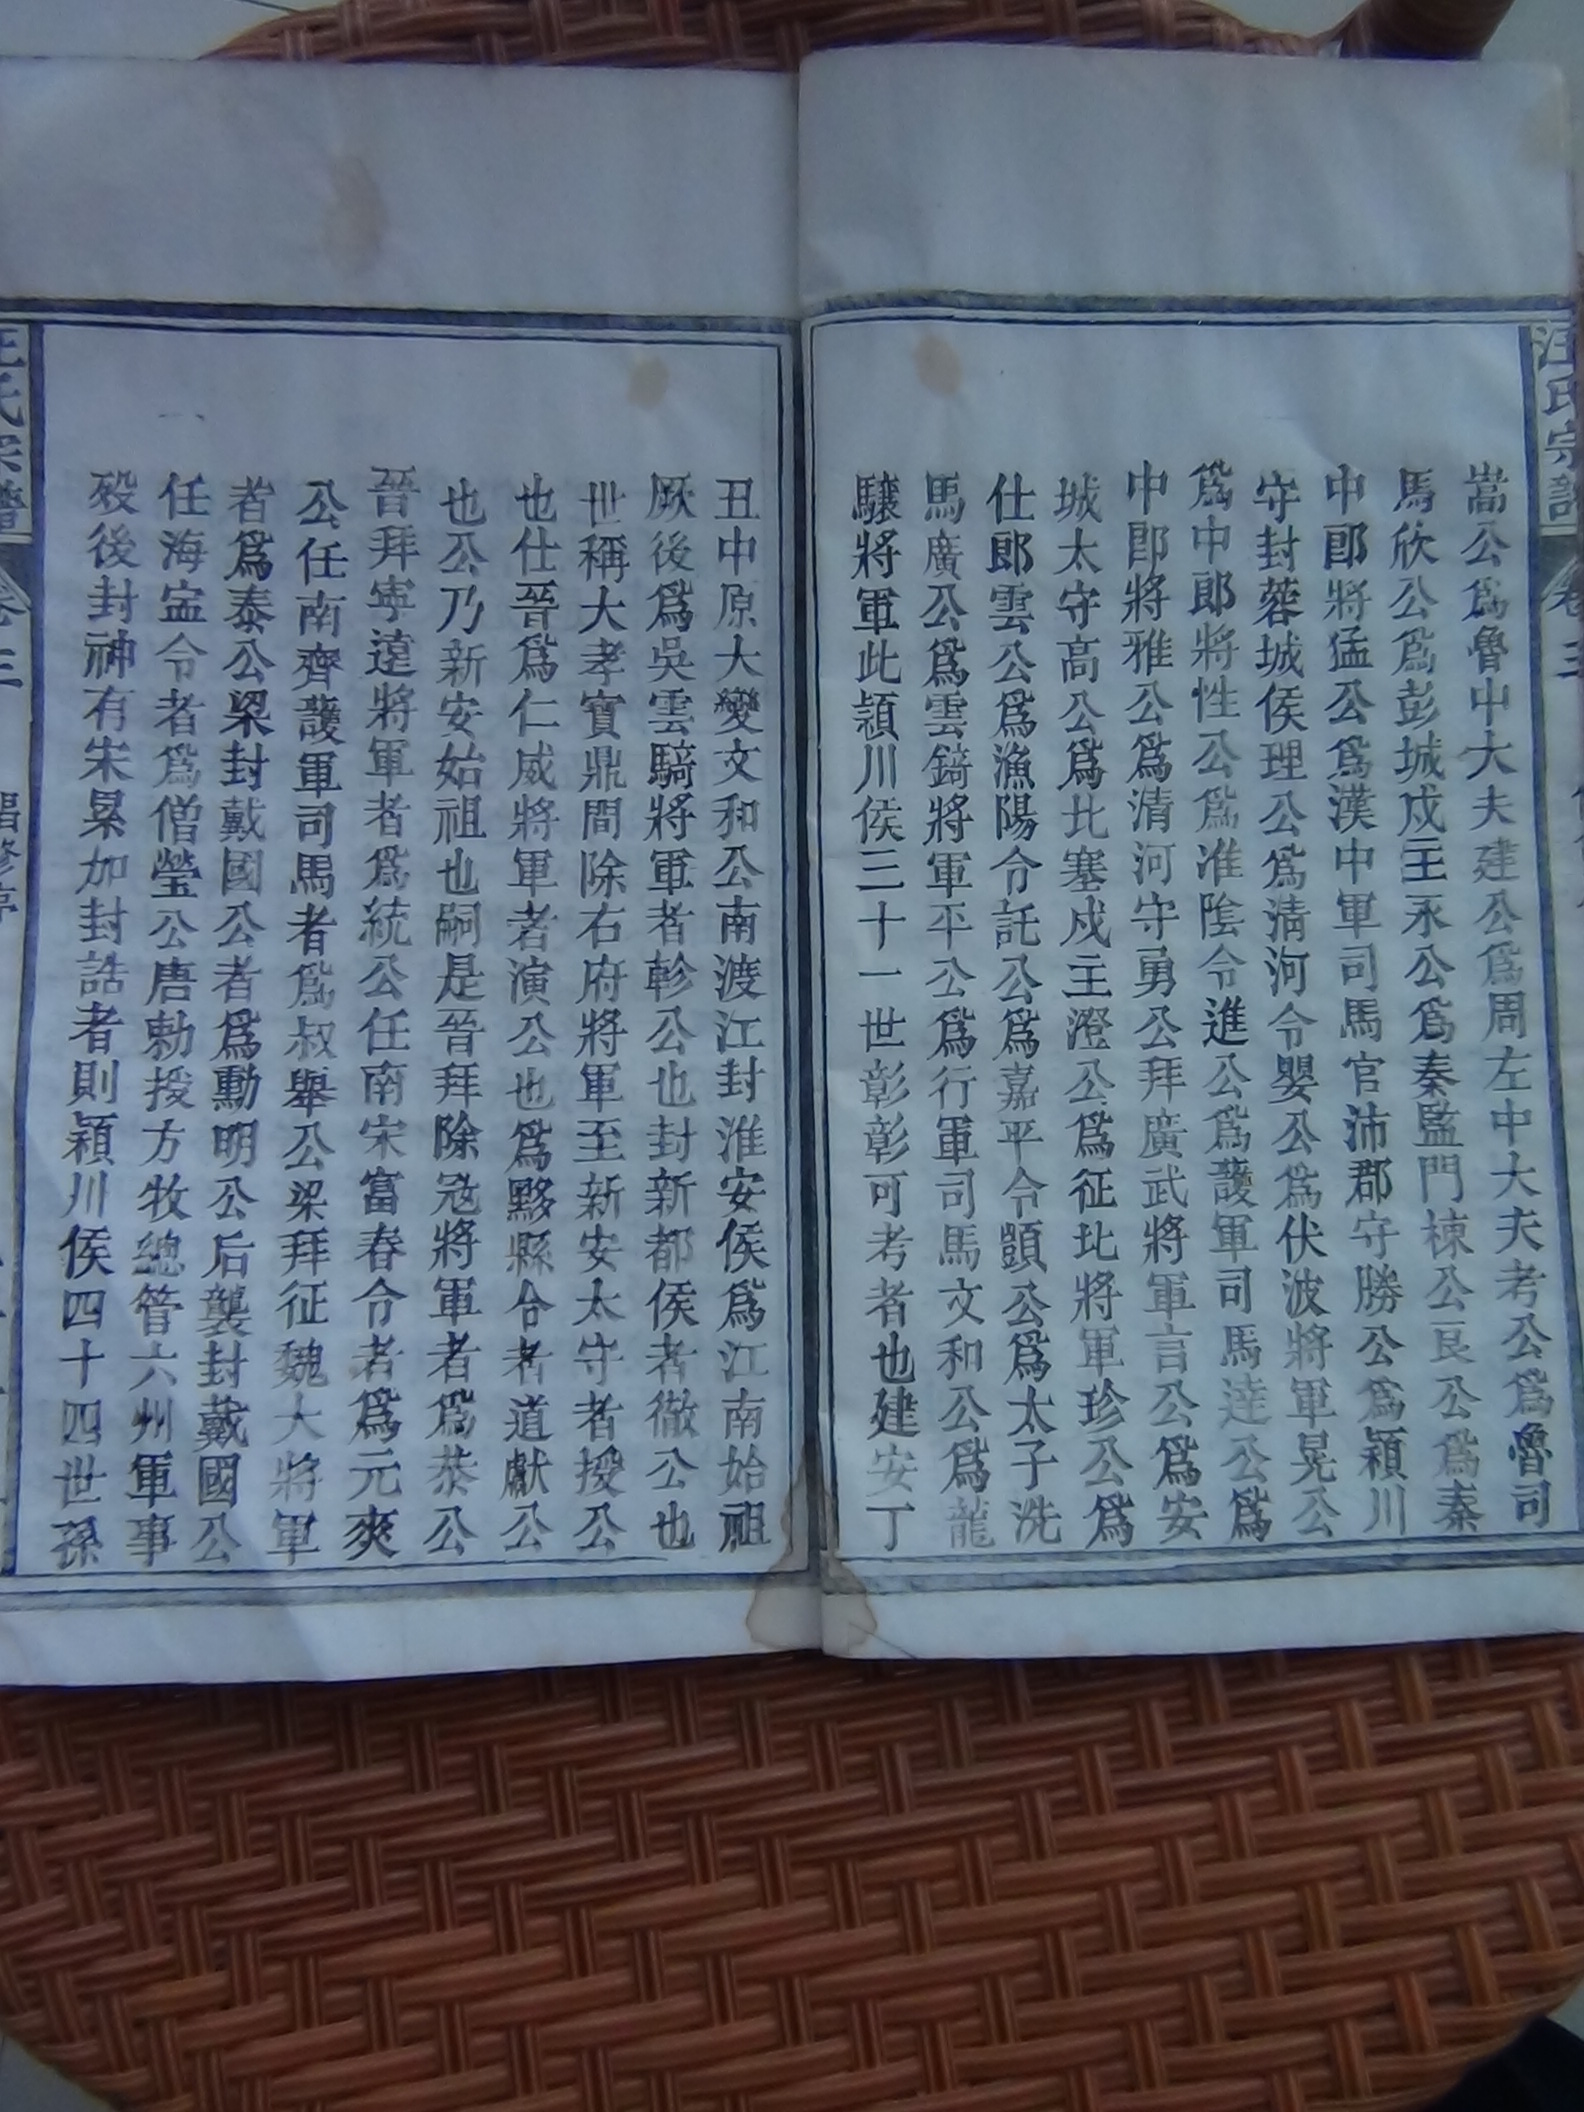 汪氏宗譜
嵩公爲魯中大夫建公爲周左中大夫考公爲魯司
馬欣公爲彭城戍主永公爲秦監門棟公艮公爲秦
中郎將猛公爲漢中軍司馬官沛郡守勝公爲潁川
守封蓉城侯理公爲清河令嬰公爲伏波將軍晃公
爲中郎將性公爲淮陰令進公爲護軍司馬逹公爲
中郎將雅公爲清河守勇公拜廣武將軍言公爲安
城太守高公爲比塞戍主澄公爲征比將軍珍公爲
仕郎雲公爲漁陽令託公爲嘉平令顗公爲太子洗
馬廣公爲雲錡將軍平公爲行軍司馬文和公爲龍
驤將軍此潁川侯三十一世彰彰可考者也建安丁
丑中原大變文和公南渡江封淮安侯爲江南始祖
厥後爲吳雲騎將軍者軫公也封新都侯者徹公也
世稱大孝寶鼎間除右府將軍至新安太守者授公
也仕晉爲仁威將軍者演公也爲黟縣令者道獻公
也公乃新安始祖也嗣是晉拜除冦將軍者爲恭公
晉拜寧遠將軍者爲統公任南宋富春令者爲元爽
公任南齊護軍司馬者爲叔舉公梁拜征魏大將軍
者爲泰公梁封戴國公者爲勳明公后襲封戴國公
任海寍令者爲僧瑩公唐勅授方牧總管六州軍事
殁後封神有宋累加封誥者則潁川侯四十四世孫
氏宗譜 卷三